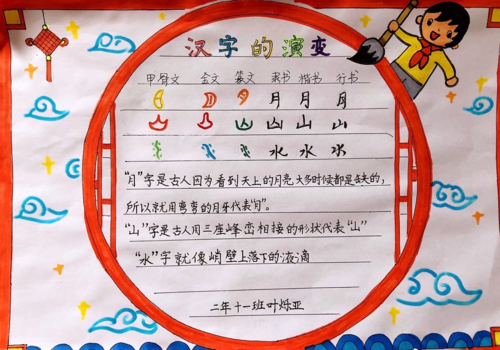 汉字的演变
甲骨文 金文 篆文 隶书 楷书 行书
月 月 月
山 山 山
水 水 水
“月”字是古人因为看到天上的月亮大多时候都是缺的,
所以就用弯弯的月牙代表“月”。
“山”字是古人用三座峰峦相接的形状代表“山”
“水”字就像峭壁上落下的液滴
二年十一班叶烁亚